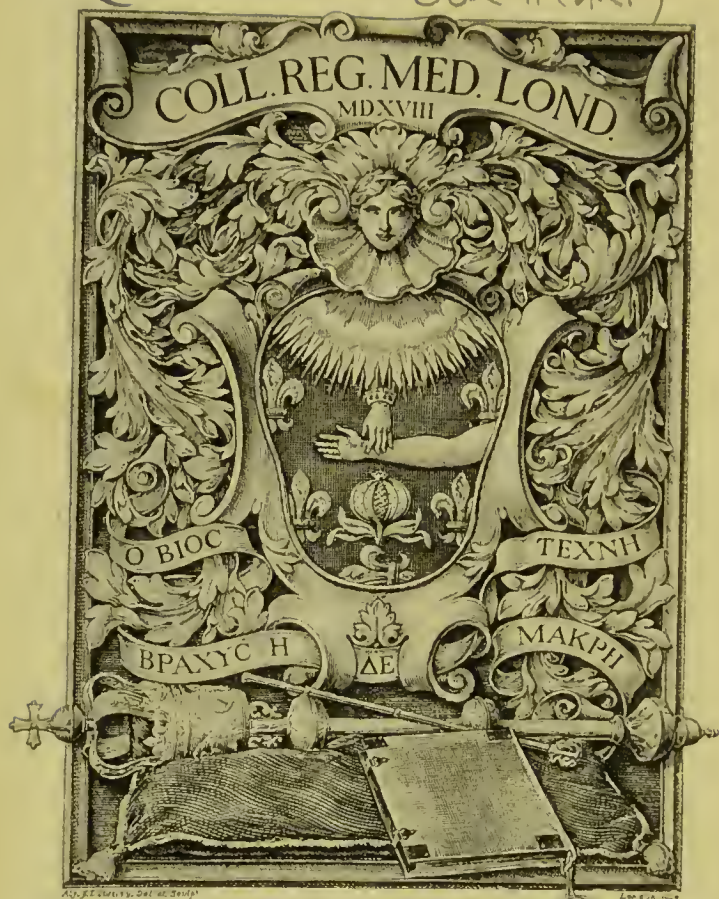 COLL. REG. MED. LOND.
MDXVIII
Ο ΒΙΟC
ΤΕΧΝΗ
ΒΡΑΧΥC Η
ΔΕ
ΜΑΚΡΗ
Del et Sculpt